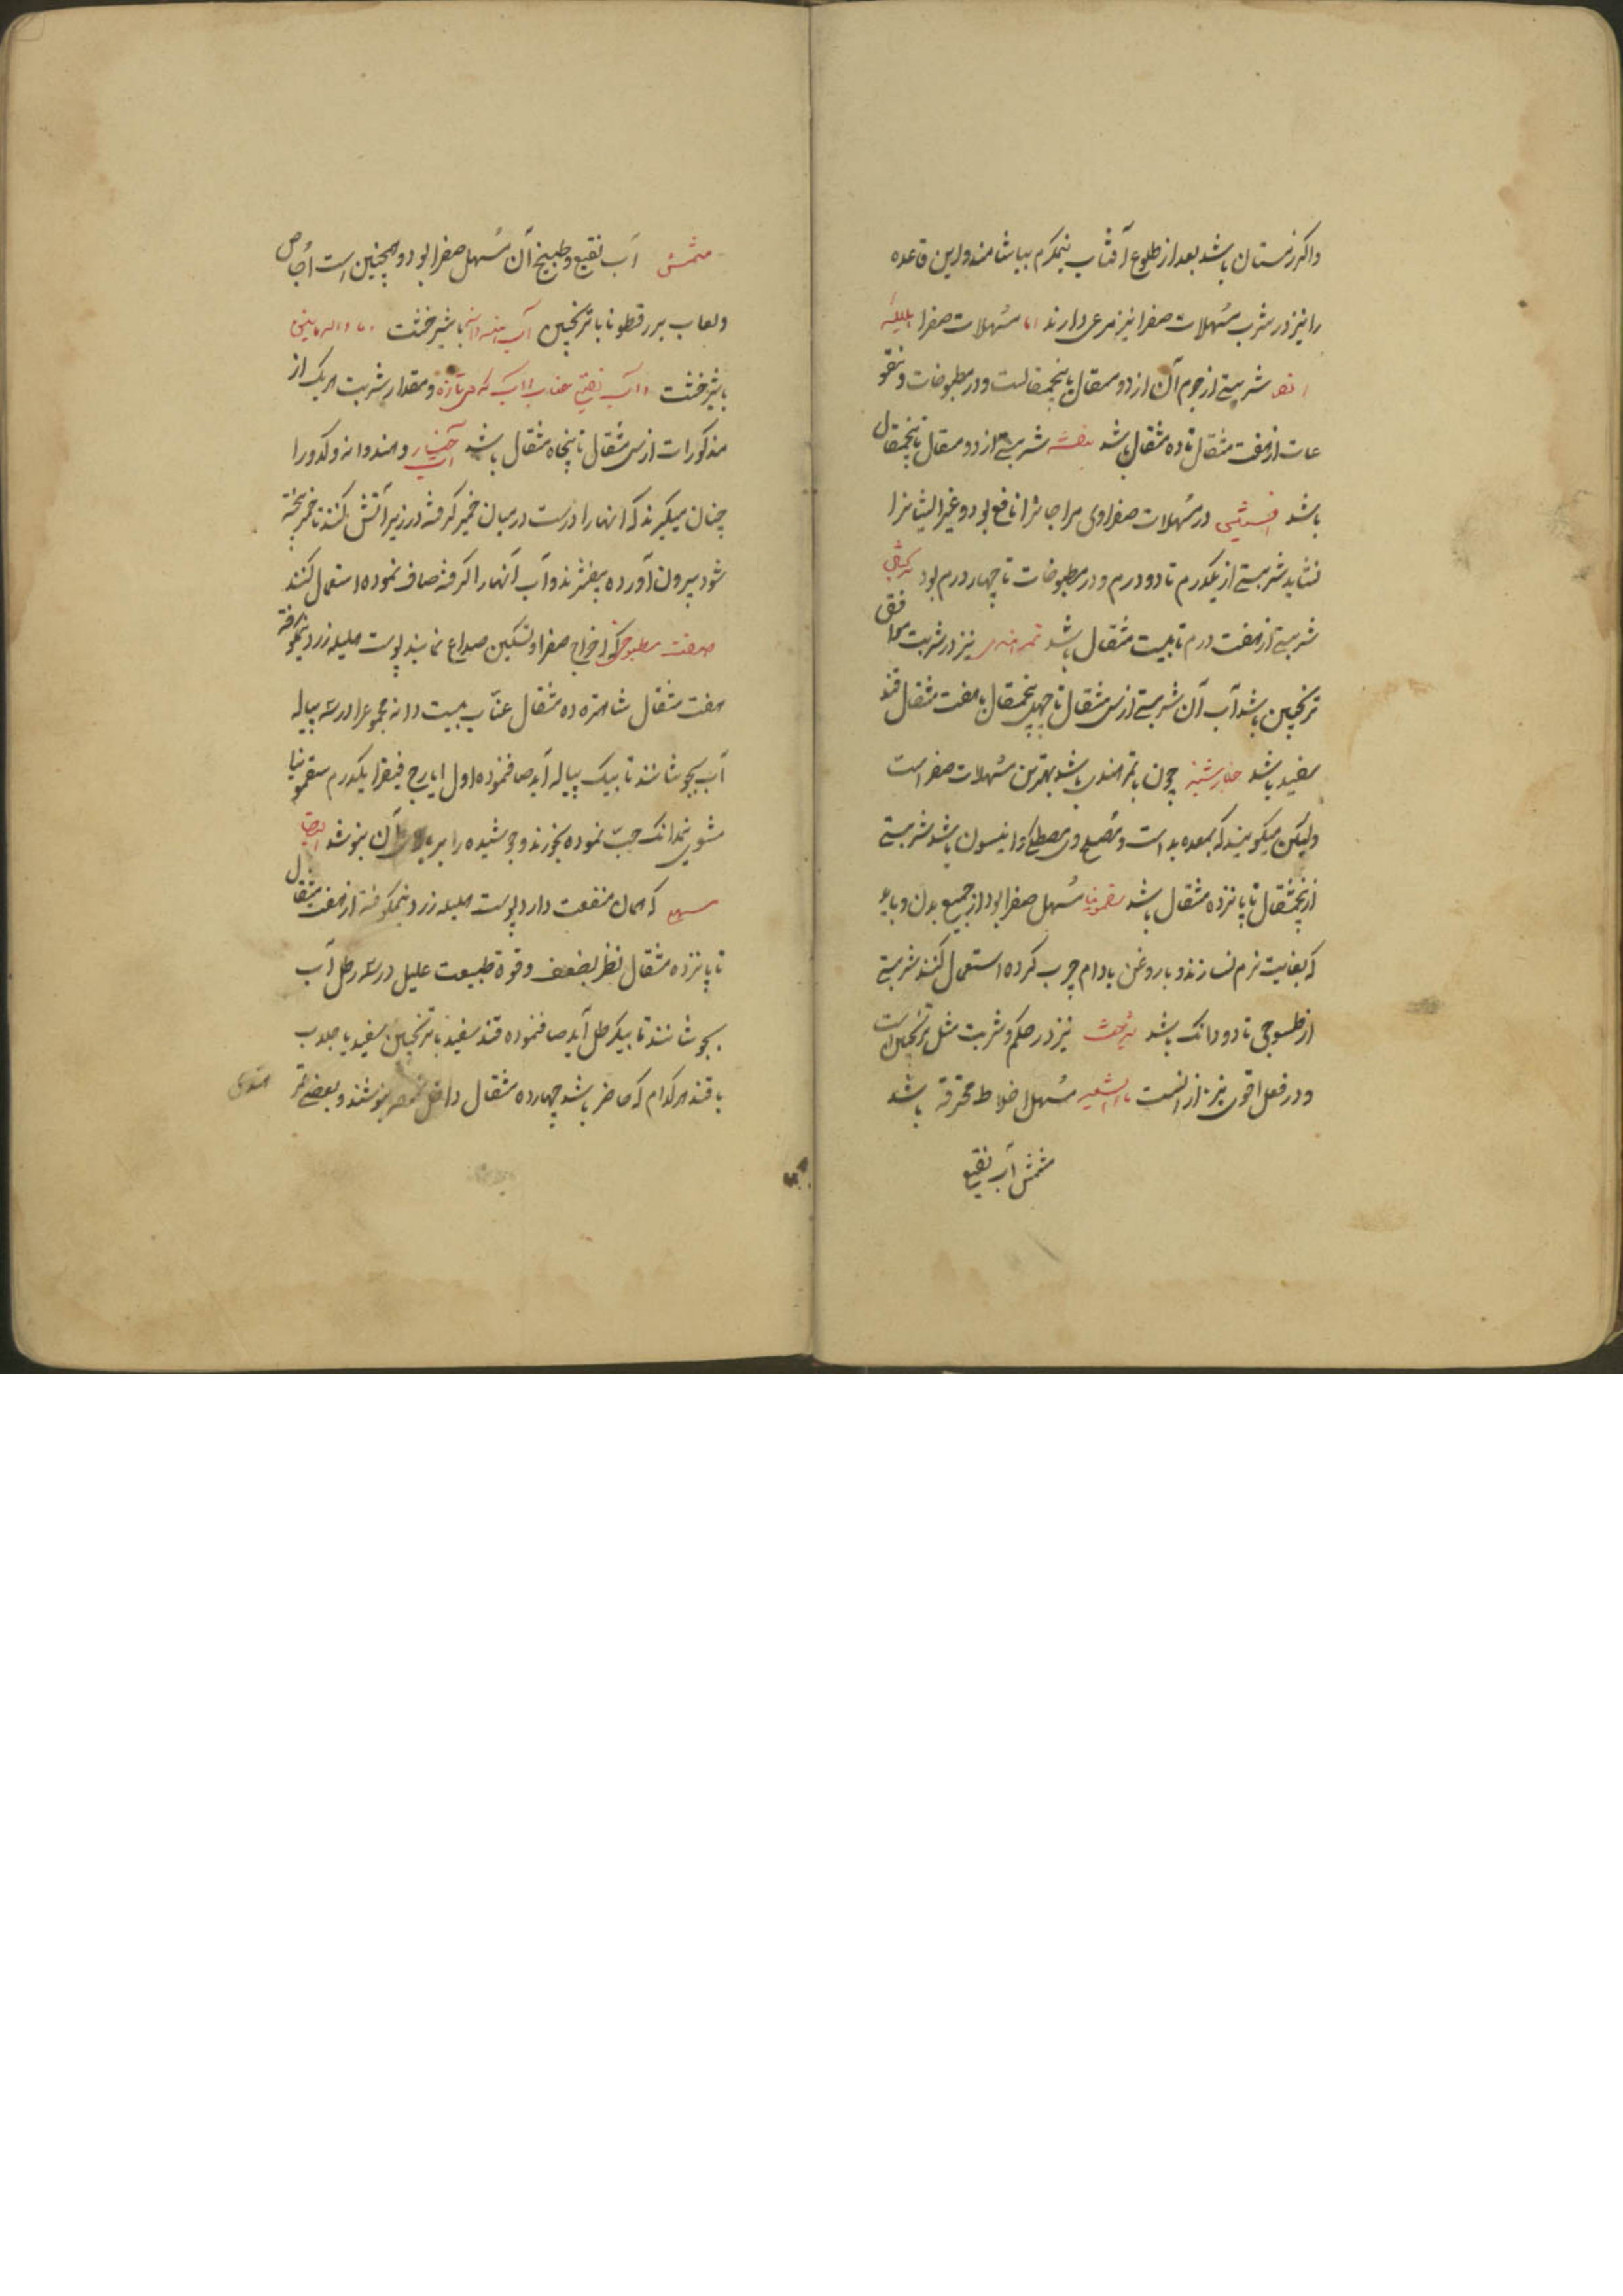 واکر زمستان باشد بعد از طلوع آفتاب نیمکرم بیاشامند و این قاعده
را نیز در شرب مسهلات صفرا نیز مرعی دارند اما مسهلات صفرا هلیله
شربتی از جرم آن از دو مثقال تا پنجمثقالست و در مطبوخات و نقو
عات از هفت مثقال تا ده مثقال باشد بنفشه شربتی از دو مثقال تا پنجمثقال
باشد افسنتین در مسهلات صفراوی مزاجانرا نافع بود و غیر ایشانرا
نشاید شربتی از یکدرم تا دو درم و در مطبوخات تا چهار درم بود
شربتی از هفت درم تا بیست مثقال باشد تمر هندی نیز در شربت موافق
ترنجبین باشد آب آن شربتی از سی مثقال تا چهل پنجمثقال با هفت مثقال قند
سفید باشد خیارشنبر چون با تمر هندی باشد بهترین مسهلات صفراست
ولیکن میکویند که بمعده بد است و مصلح وی مصطکی و انیسون باشد شربتی
از پنجمثقال تا پانزده مثقال باشد سقمونیا مسهل صفرا بود از جمیع بدن و باید
که بغایت نرم نسازند و با روغن بادام چرب کرده استعمال کنند شربتی
از طسوجی تا دو دانک باشد شیرخشت نیز در حکم و شربت مثل ترنجبین است
و در فعل اقوی نیز از انست ماء الشعیر مسهل اخلاط محترقه باشد
مشمش آب نقیع
مشمش آب نقیع و طبیخ آن مسهل صفرا بود و همچنین است اجاص
و لعاب بزرقطونا با ترنجبین آب هندوانه با شیرخشت
با شیرخشت و آب نقیع عناب تازه و مقدار شربت هر یک از
مذکورات از سی مثقال تا پنجاه مثقال باشد آب خیار و هندوانه و کدو را
چنان میکیرند که انها را درست در میان خمیر کرفته در زیر آتش کنند تا خمیر پخته
شود بیرون آورده بیفشرند و آب آنها را کرفته صاف نموده استعمال کنند
صفت مطبوخی که اخراج صفرا و تسکین صداع نماید پوست هلیله زرد نیمکوفته
هفت مثقال شاهتره ده مثقال عناب بیست دانه مجموع را در سه پیاله
آب بجوشانند تا بیک پیاله آید صاف نموده اول ایارج فیقرا یکدرم سقمونیا
مشوی نیمدانک حب نموده بخورند و جوشیده را بر بالای آن بنوشد ایضا
مسهلی که همان منفعت دارد پوست هلیله زرد نیمکوفته از هفت مثقال
تا پانزده مثقال نظر بضعف و قوة طبیعت علیل در سه رطل آب
بجوشانند تا بیکرطل آید صاف نموده قند سفید با ترنجبین سفید یا جلاب
با قند هرکدام که حاضر باشد چهارده مثقال داخل نموده بنوشند و بعضی تمر
هندی